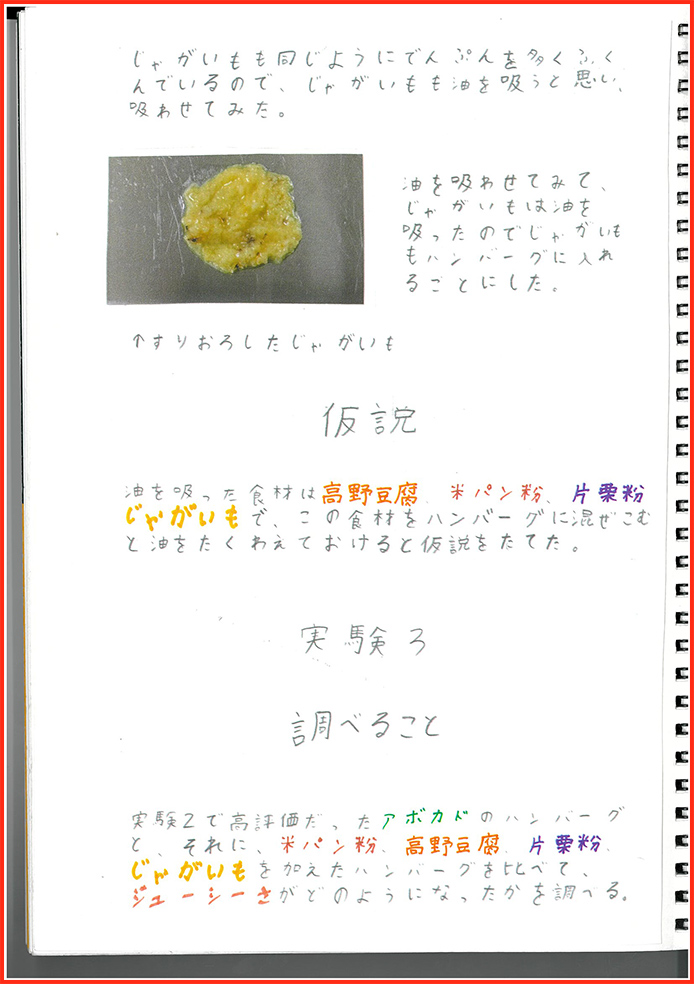 じゃがいもも同じようにでんぷんを多くふく
んでいるので、じゃがいもも油を吸うと思い、
吸わせてみた。
油を吸わせてみて、
じゃがいもは油を
吸ったのでじゃがいも
もハンバーグに入れ
ることにした。
↑すりおろしたじゃがいも
仮説
油を吸った食材は高野豆腐、米パン粉、片栗粉
じゃがいもで、この食材をハンバーグに混ぜこむ
と油をたくわえておけると仮説をたてた。
実験3
調べること
実験2で高評価だったアボカドのハンバーグ
と、それに、米パン粉、高野豆腐、片栗粉、
じゃがいもを加えたハンバーグを比べて、
ジューシーさがどのようになったかを調べる。